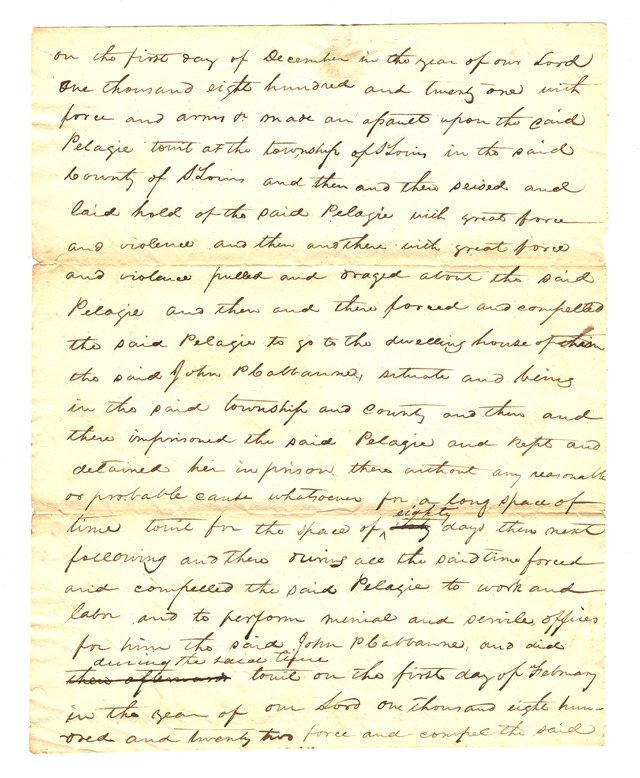 on the first day of December in the year of our Lord
one thousand eight hundred and twenty one with
force and arms &c made an assault upon the said
Pelagie towit at the township of St Louis in the said
County of St Louis and then and there seised and
laid hold of the said Pelagie with great force
and violence and then and there with great force
and violence pulled and draged about the said
Pelagie and then and there forced and compelled
the said Pelagie to go to the dwelling house of them
the said John P Cabbanne, situate and being
in the said township and County and then and
there imprisoned the said Pelagie and kept and
detained her in prison there without any reasonable
or probable cause whatsoever for a long space of
eighty
time towit for the space of days then next
following and there during all the said time forced
and compelled the said Pelagie to work and
labor and to perform menial and servile offices
for him the said John P Cabbanne, and did
during the said time
then afterwards towit on the first day of February
in the year of our Lord one thousand eight hun-
dred and twenty two force and compel the said